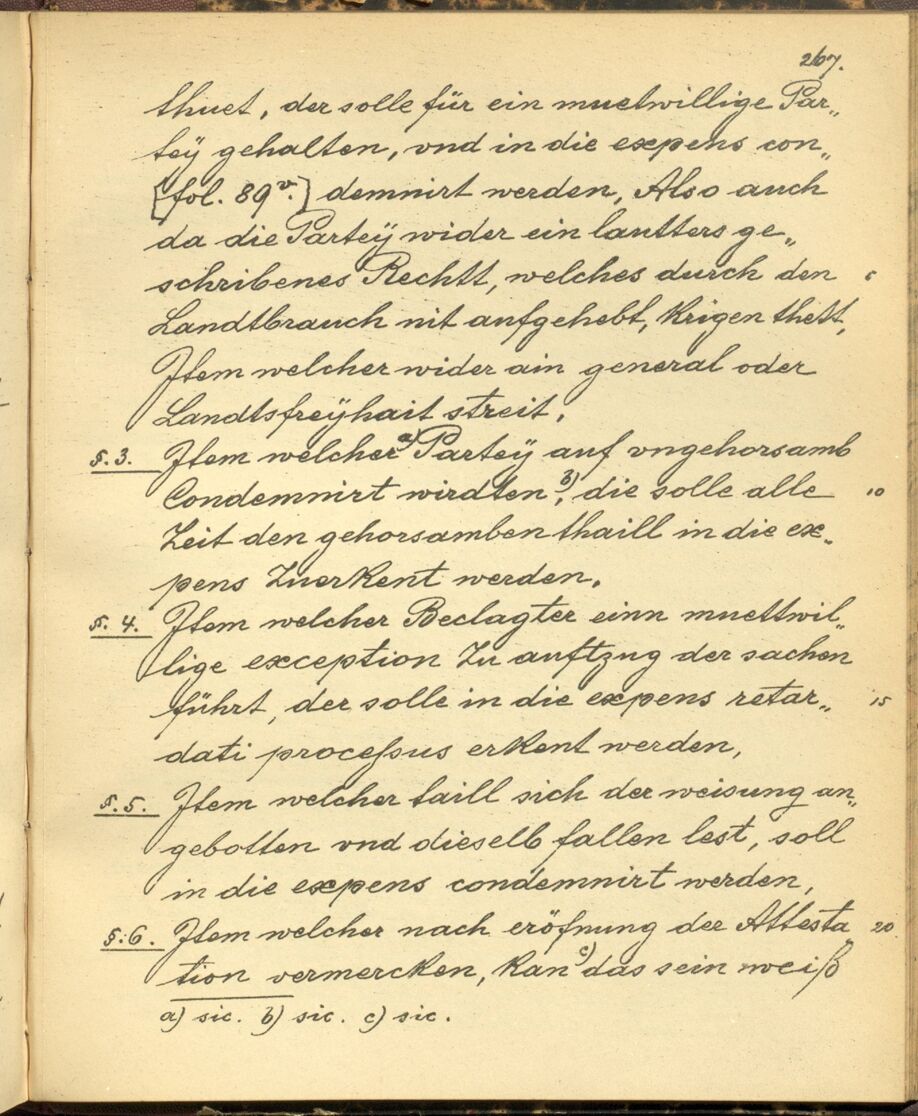 267.
thuet, der solle für ein muetwillige Par„
tey gehalten, vnd in die expens con„
[fol. 89v.] demnirt werden, Also auch
da die Partey wider ein lautters ge„
schribenes Rechtt, welches durch den
Landtbrauch nit aufgehebt, Krigen thett,
Item welcher wider ain general oder
Landtsfreyhait streit,
§. 3. Item welcher a) Partey auf vngehorsamb
Condemnirt wirdten b), die solle alle 10
Zeit den gehorsamben thaill in die ex„
pens Zuerkent werden.
§. 4. Item welcher Beclagter einn muettwil„
lige exception Zu auftzug der sachen
führt, der solle in die expens retar„ 15
dati processus erkent werden,
§. 5. Item welcher taill sich der weisung an„
gebotten vnd dieselb fallen lest, soll
in die expens condemnirt werden,
§. 6. Item welcher nach eröfnung der Attesta„ 20
tion vermercken, kan c) das sein weiß
a) sic. b) sic. c) sic.